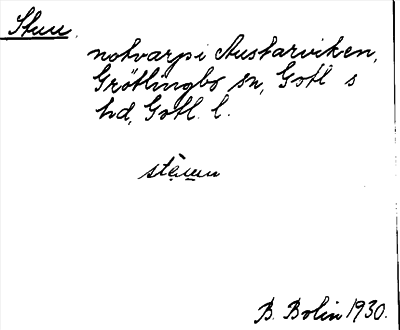 Stuu.
notvarp i Austarviken,
Grötlingbo sn, Gotl s
hd, Gotl. l.
B. Bolin 1930.